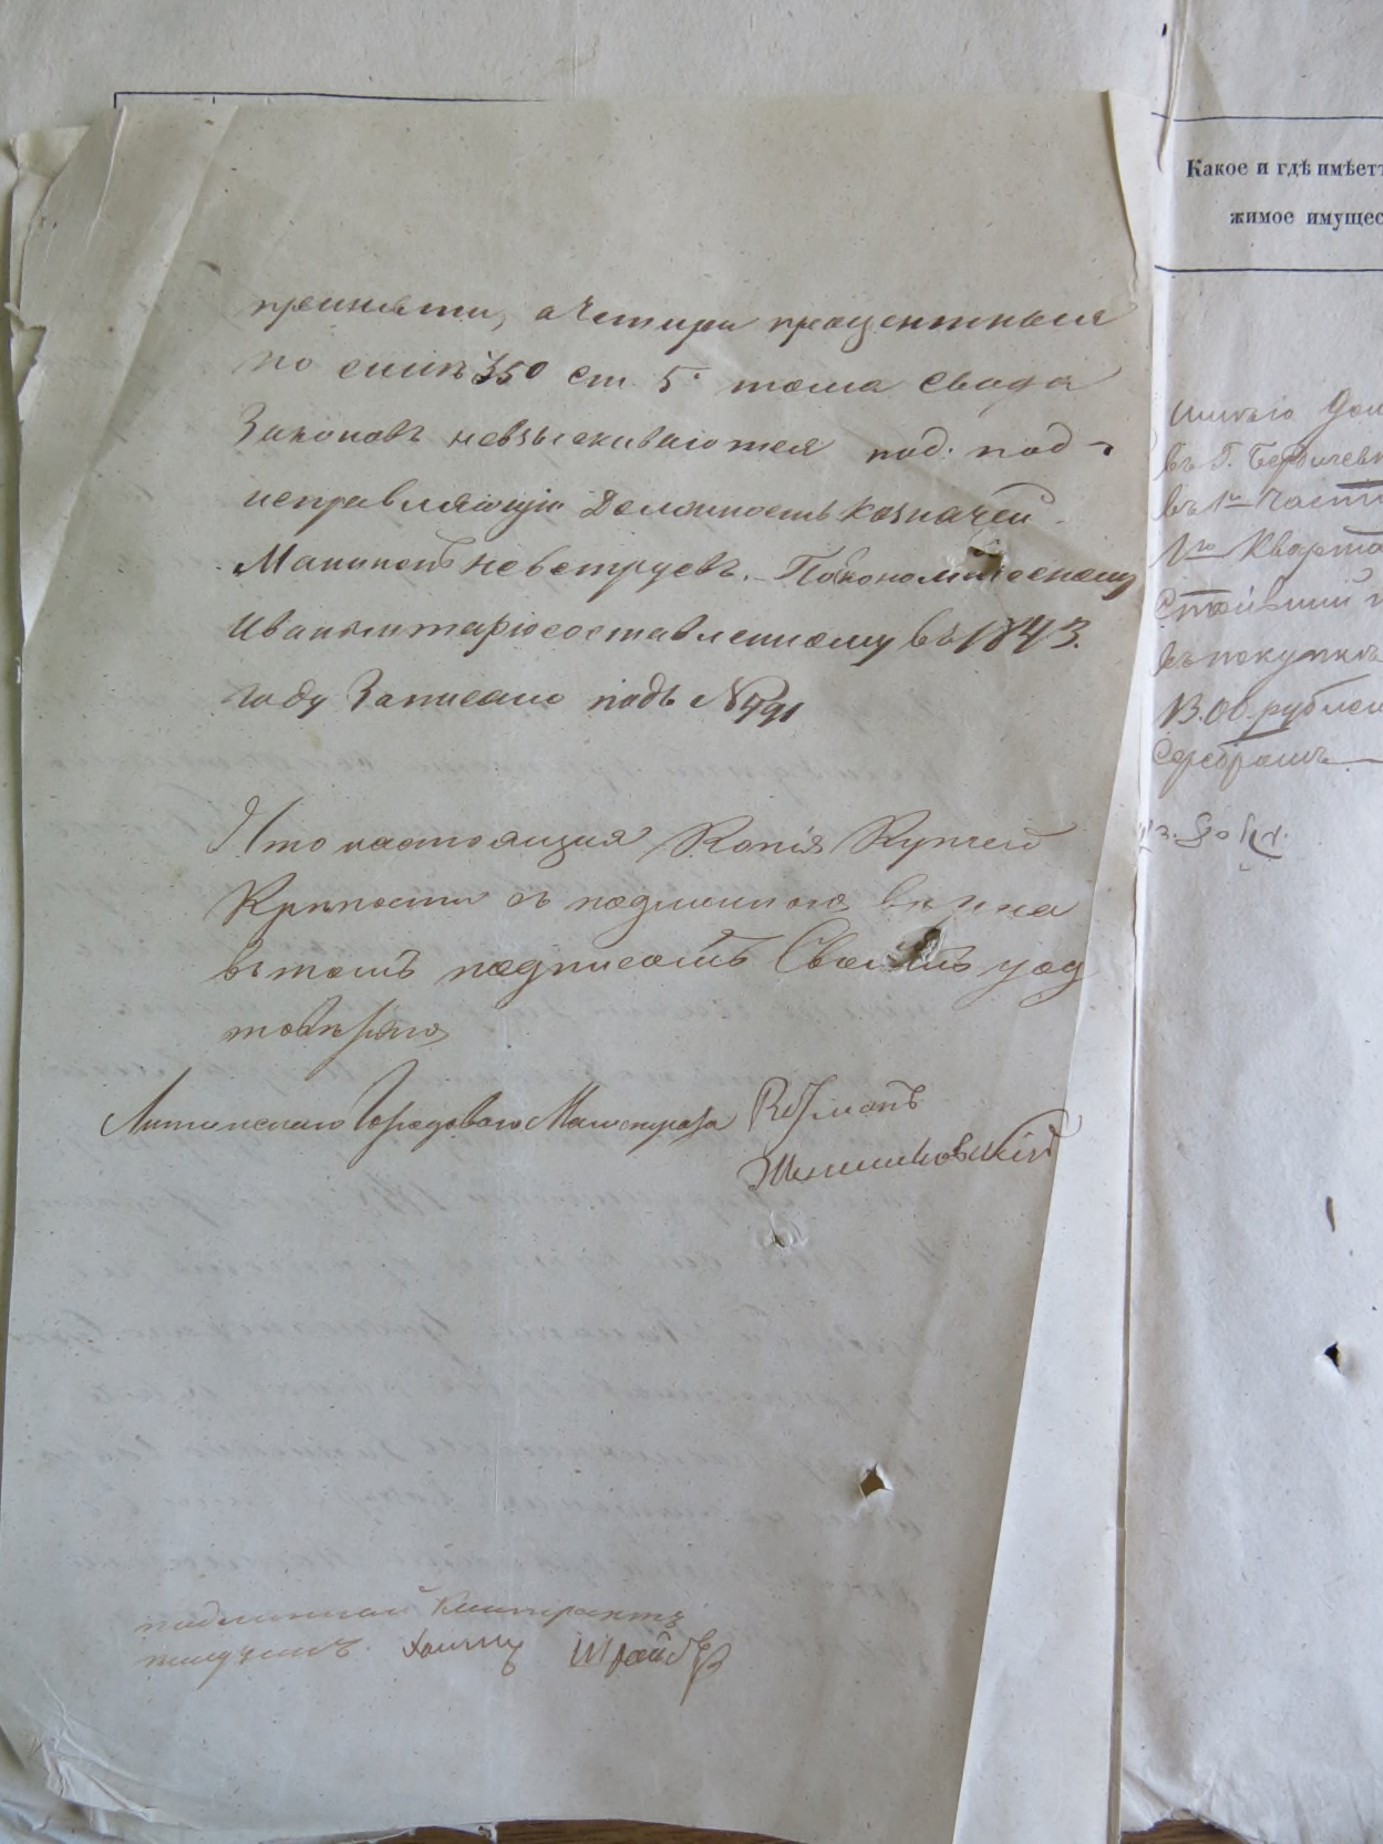 приняты, а Четыри процентныя
по силѣ 350 ст. 5. тома Свода
Законовъ невзыскиваются под. под
исправляющій Должность Казначея
Невструевъ. По
Ивапотаріюсоставленному въ 1843.
году Записано подъ № 491
Что настоящая Копія Купчей
Крѣпости съ подлинною вѣрна
въ томъ подписомъ Своимъ удо
товѣряю
Литинскаго Городоваго Магистрата Ратманъ
подлинный Контрактъ
получилъ. Шрайбер
Какое и гдѣ имѣетъ
жимое имущес
Имѣю Дом
въ Г. Бердичевѣ
въ 1й Части
1го Кварта
Стоившій
въ покупкѣ
рублей
Серебромъ